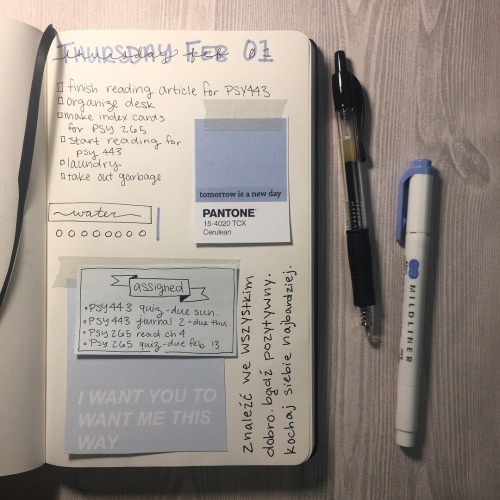 THURSDAY FEB 01
finish reading article for PSY443
organize desk
make index cards
for PSY 265
start reading for
psy 443
laundry
take out garbage
tomorrow is a new day
PANTONE
15-4020 TCX
Cerulean
water
assigned
• PSY443 quiz - due sun.
• PSY443 journal 2 - due thu.
• PSY265 read ch 4
• PSY 265 quiz - due feb. 13
I WANT YOU TO
WANT ME THIS
WAY
Znaleźć we wszystkim
dobro. bądź pozytywny.
kochaj siebie najbardziej.
MILDLINER